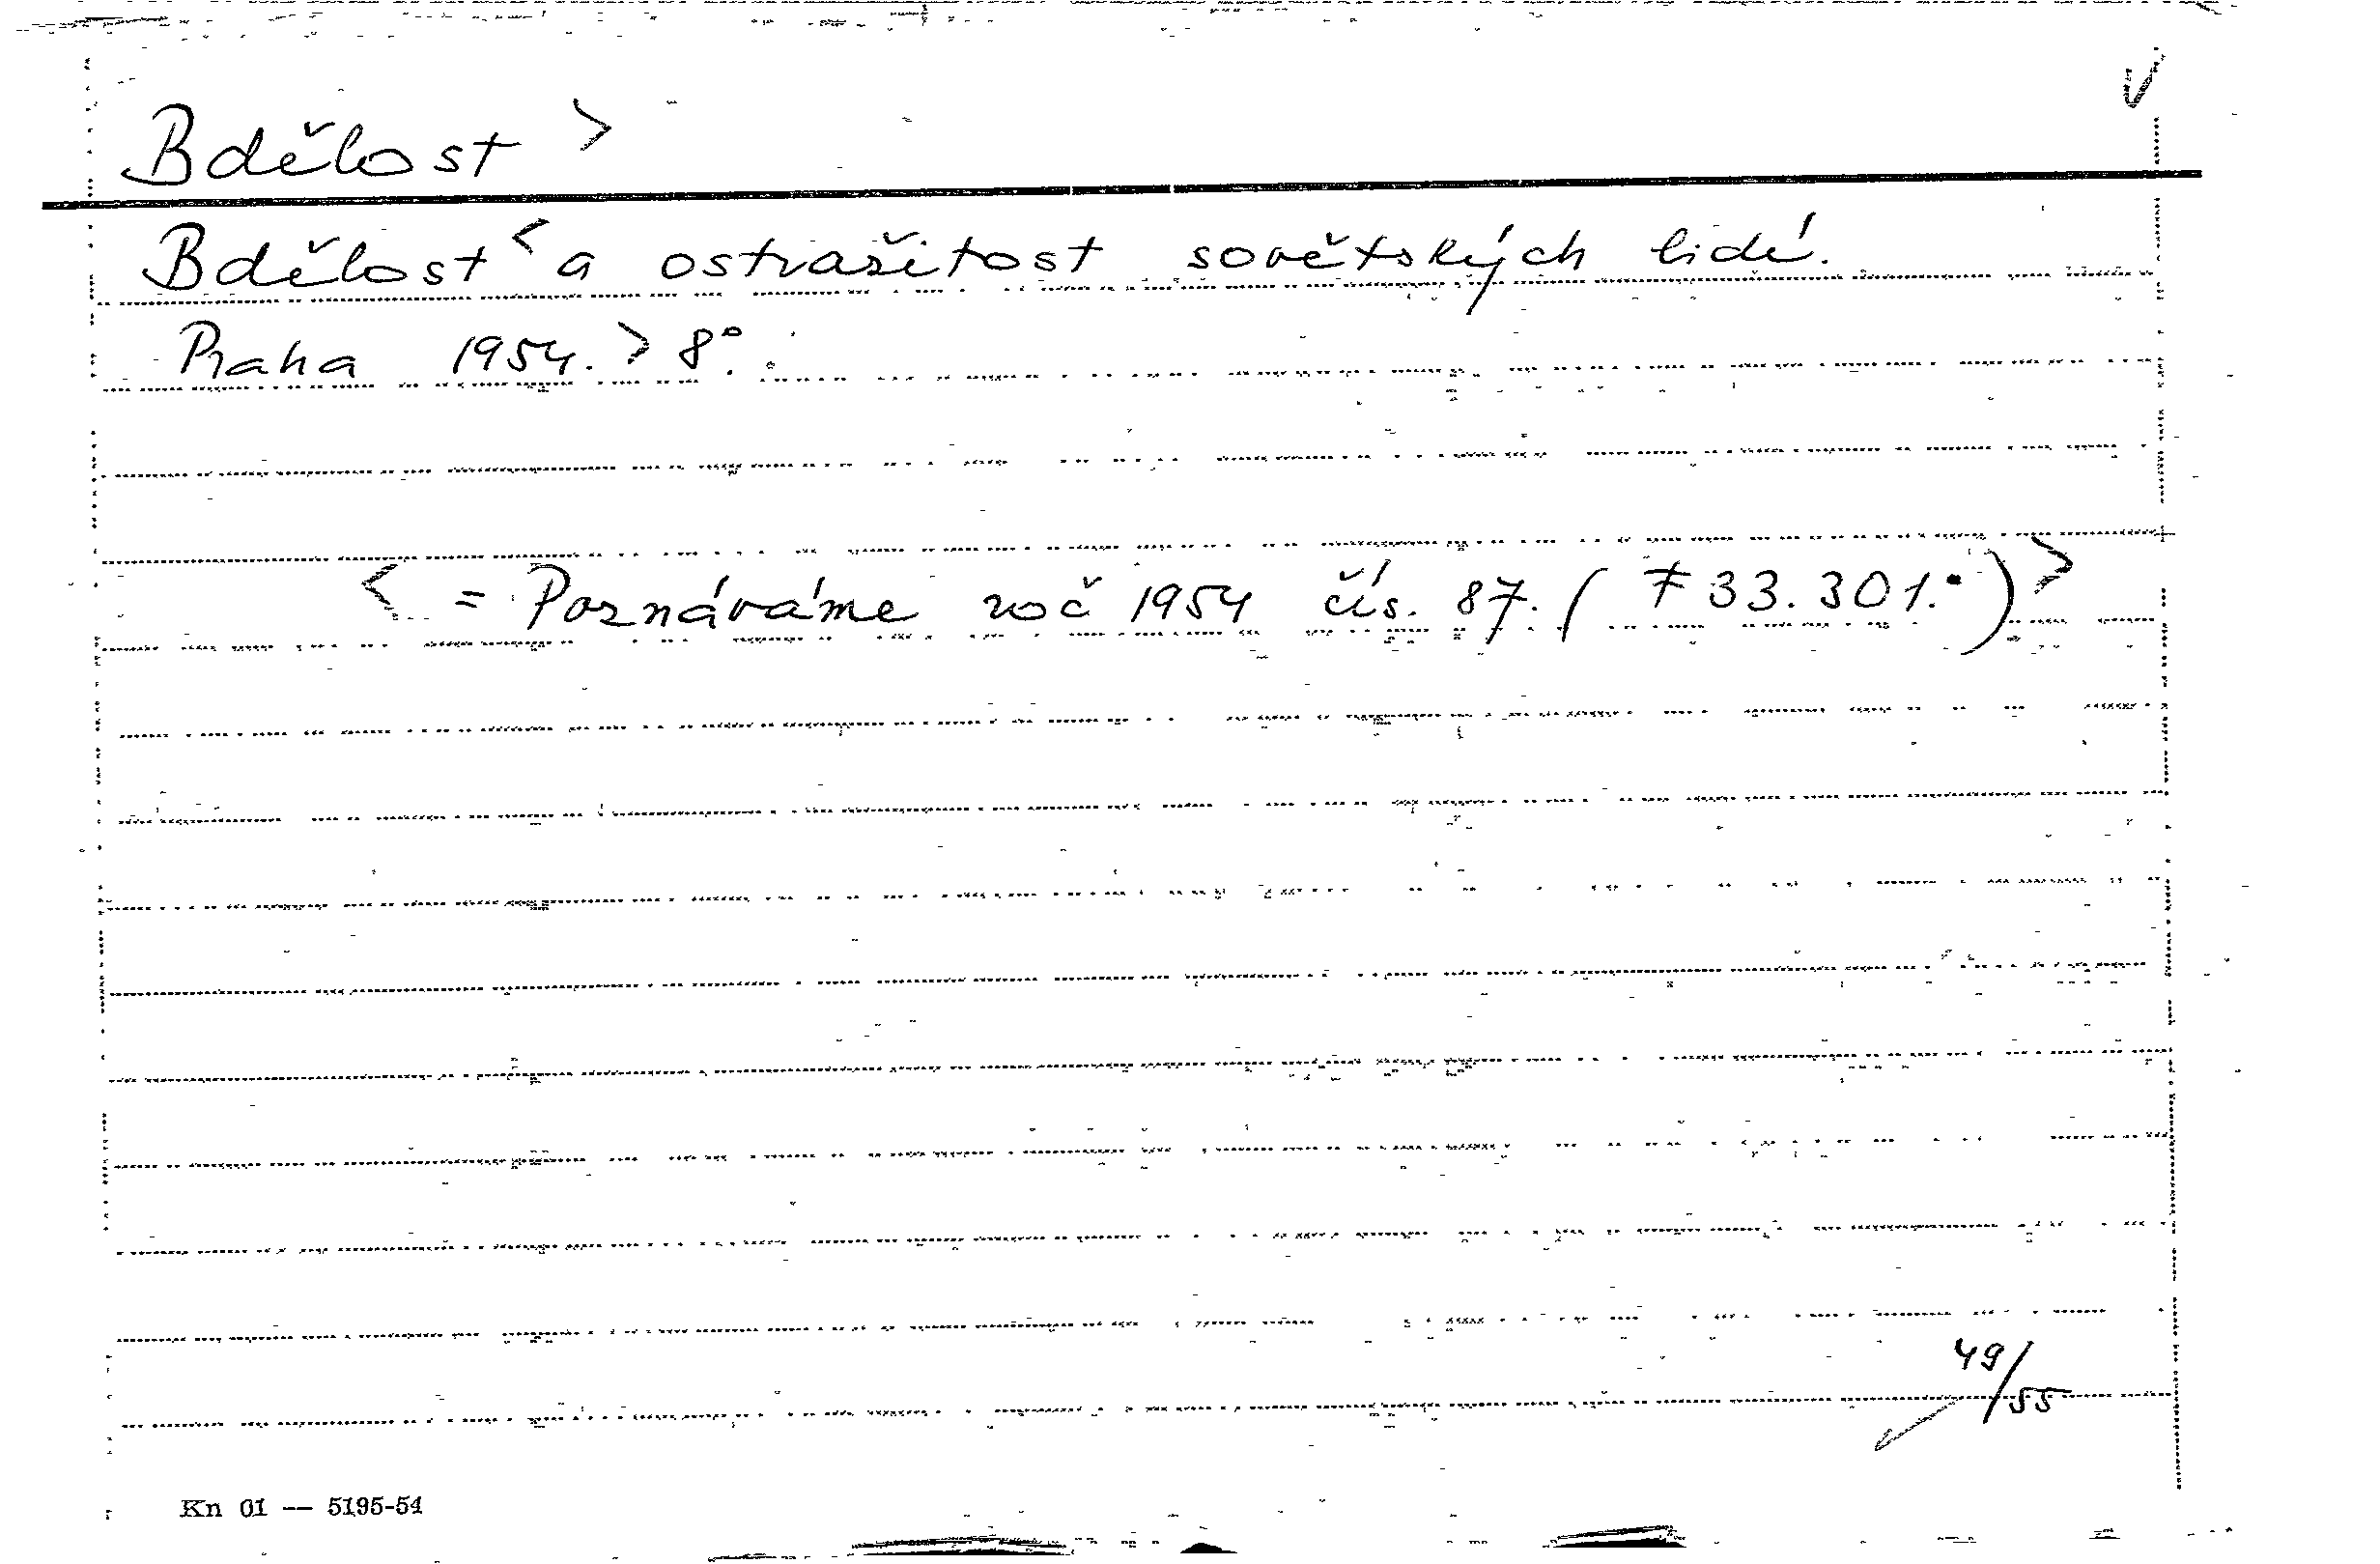 Bdělost >
Bdělost < a ostražitost sovětských lidí.
Praha 1954. > 8°.
< = Poznáváme roč 1954 čís. 87. ( F 33.301.)>
49/55
Kn 01 — 5195-54